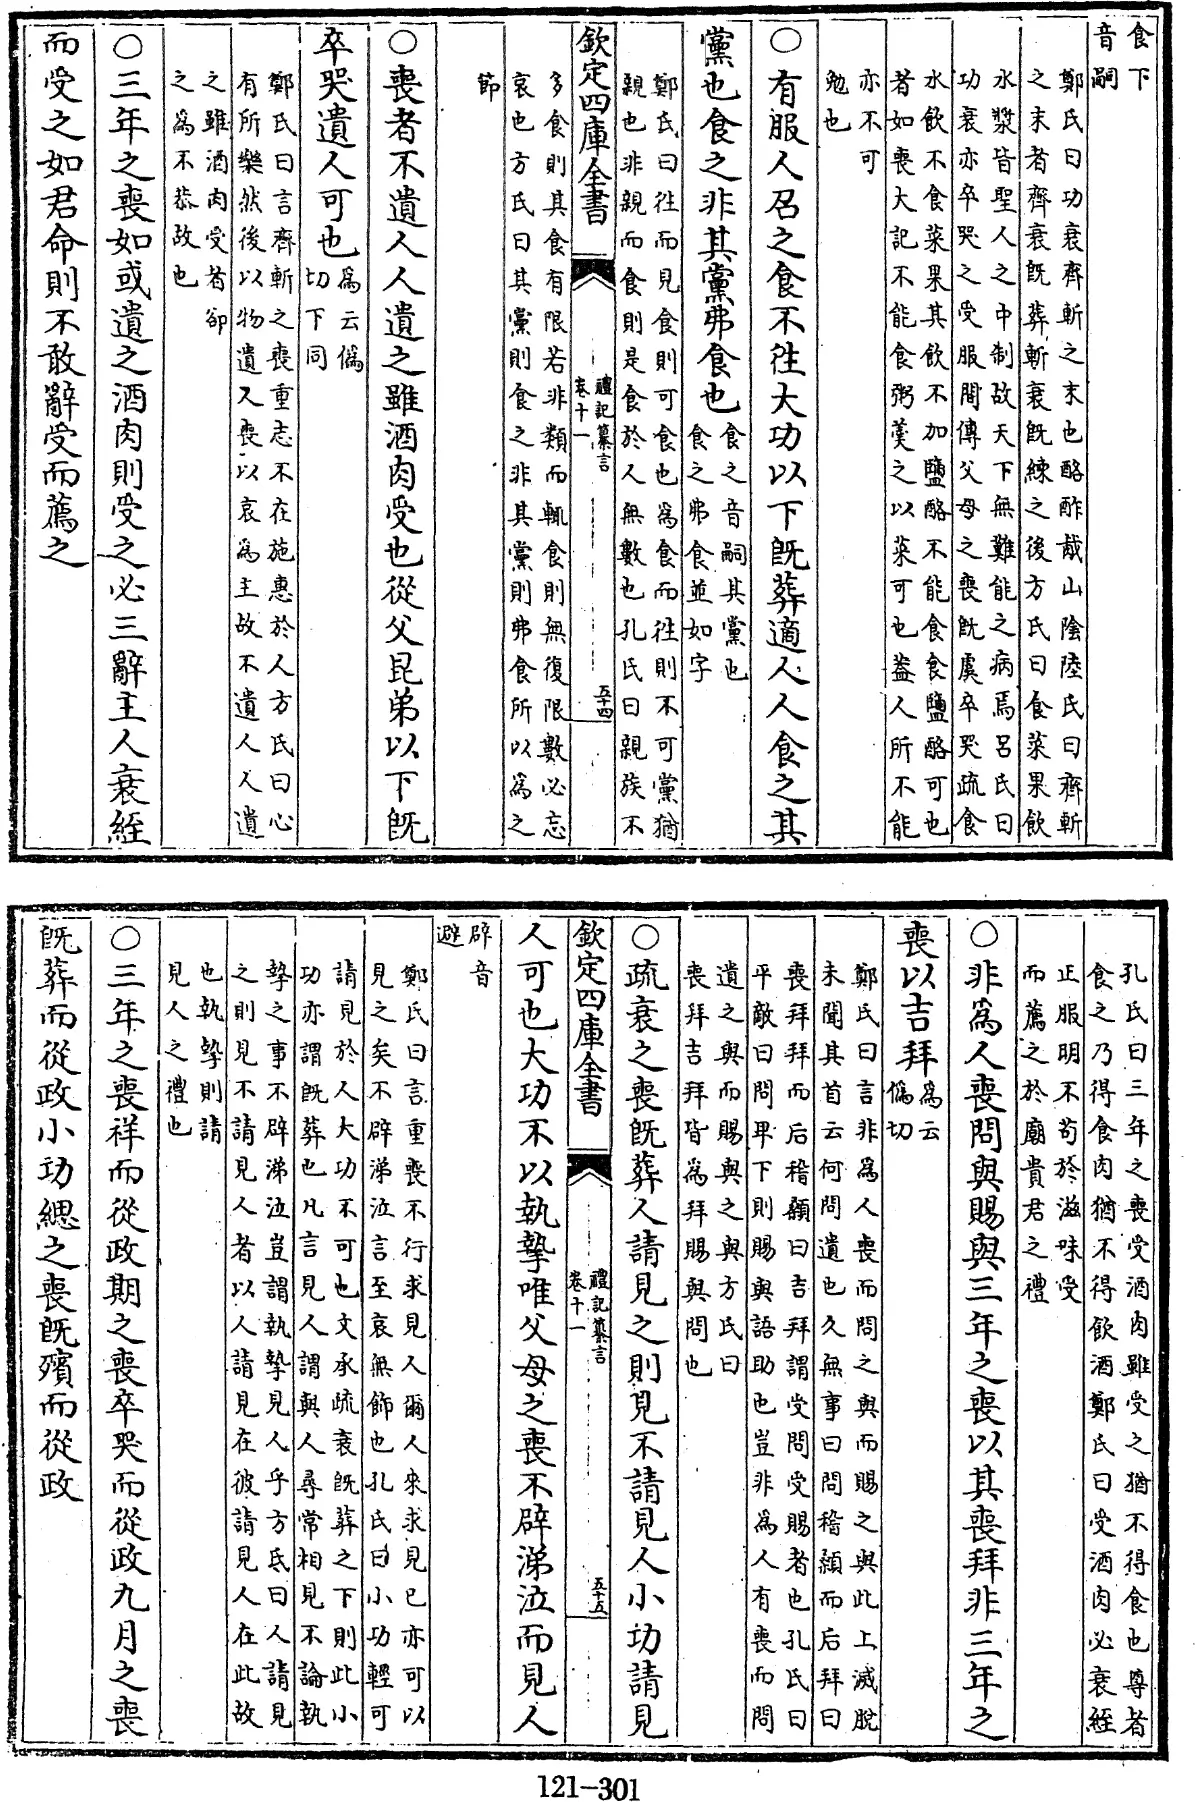 食下
音嗣
鄭氏曰功衰齊斬之末也酪酢胾山陰陸氏曰齊斬
之末者齊衰旣葬斬衰旣練之後方氏曰食菜果飲
水漿皆聖人之中制故天下無難能之病焉呂氏曰
功衰亦卒哭之受服間傳父母之喪旣虞卒哭疏食
水飲不食菜果其飲不加鹽酪不能食食鹽酪可也
者如喪大記不能食粥羮之以菜可也葢人所不能
亦不可
勉也
○有服人召之食不往大功以下旣葬適人人食之其
黨也食之非其黨弗食也
食之音嗣其黨也
食之弗食並如字
鄭氏曰往而見食則可食也爲食而往則不可黨猶
親也非親而食則是食於人無數也孔氏曰親族不
欽定四庫全書
禮記纂言
卷十一
五十四
多食則其食有限若非類而輒食則無復限數必忘
哀也方氏曰其黨則食之非其黨則弗食所以爲之
節
○喪者不遺人人遺之雖酒肉受也從父昆弟以下旣
卒哭遺人可也
爲云僞
切下同
鄭氏曰言齊斬之喪重志不在施惠於人方氏曰心
有所樂然後以物遺又喪以哀爲主故不遺人人遺
之雖酒肉受者卻
之爲不恭故也
○三年之喪如或遺之酒肉則受之必三辭主人衰絰
而受之如君命則不敢辭受而薦之
孔氏曰三年之喪受酒肉雖受之猶不得食也尊者
食之乃得食肉猶不得飲酒鄭氏曰受酒肉必衰絰
正服明不苟於滋味受
而薦之於廟貴君之禮
○非爲人喪問與賜與三年之喪以其喪拜非三年之
喪以吉拜
爲云
僞切
鄭氏曰言非爲人喪而問之與而賜之與此上滅脫
未聞其首云何問遺也久無事曰問稽顙而后拜曰
喪拜拜而后稽顙曰吉拜謂受問受賜者也孔氏曰
平敵曰問畀下則賜與語助也豈非爲人有喪而問
遺之與而賜與之與方氏曰
喪拜吉拜皆爲拜賜與問也
○疏衰之喪旣葬人請見之則見不請見人小功請見
欽定四庫全書
禮記纂言
卷十一
五十五
人可也大功不以執摯唯父母之喪不辟涕泣而見人
辟音
避
鄭氏曰言重喪不行求見人爾人來求見已亦可以
見之矣不辟涕泣言至哀無飾也孔氏曰小功輕可
請見於人大功不可也文承疏衰旣葬之下則此小
功亦謂旣葬也凡言見人謂與人尋常相見不論執
摯之事不辟涕泣豈謂執摯見人乎方氏曰人請見
之則見不請見人者以人請見在彼請見人在此故
也執摯則請
見人之禮也
○三年之喪祥而從政期之喪卒哭而從政九月之喪
旣葬而從政小功緦之喪旣殯而從政
121-301